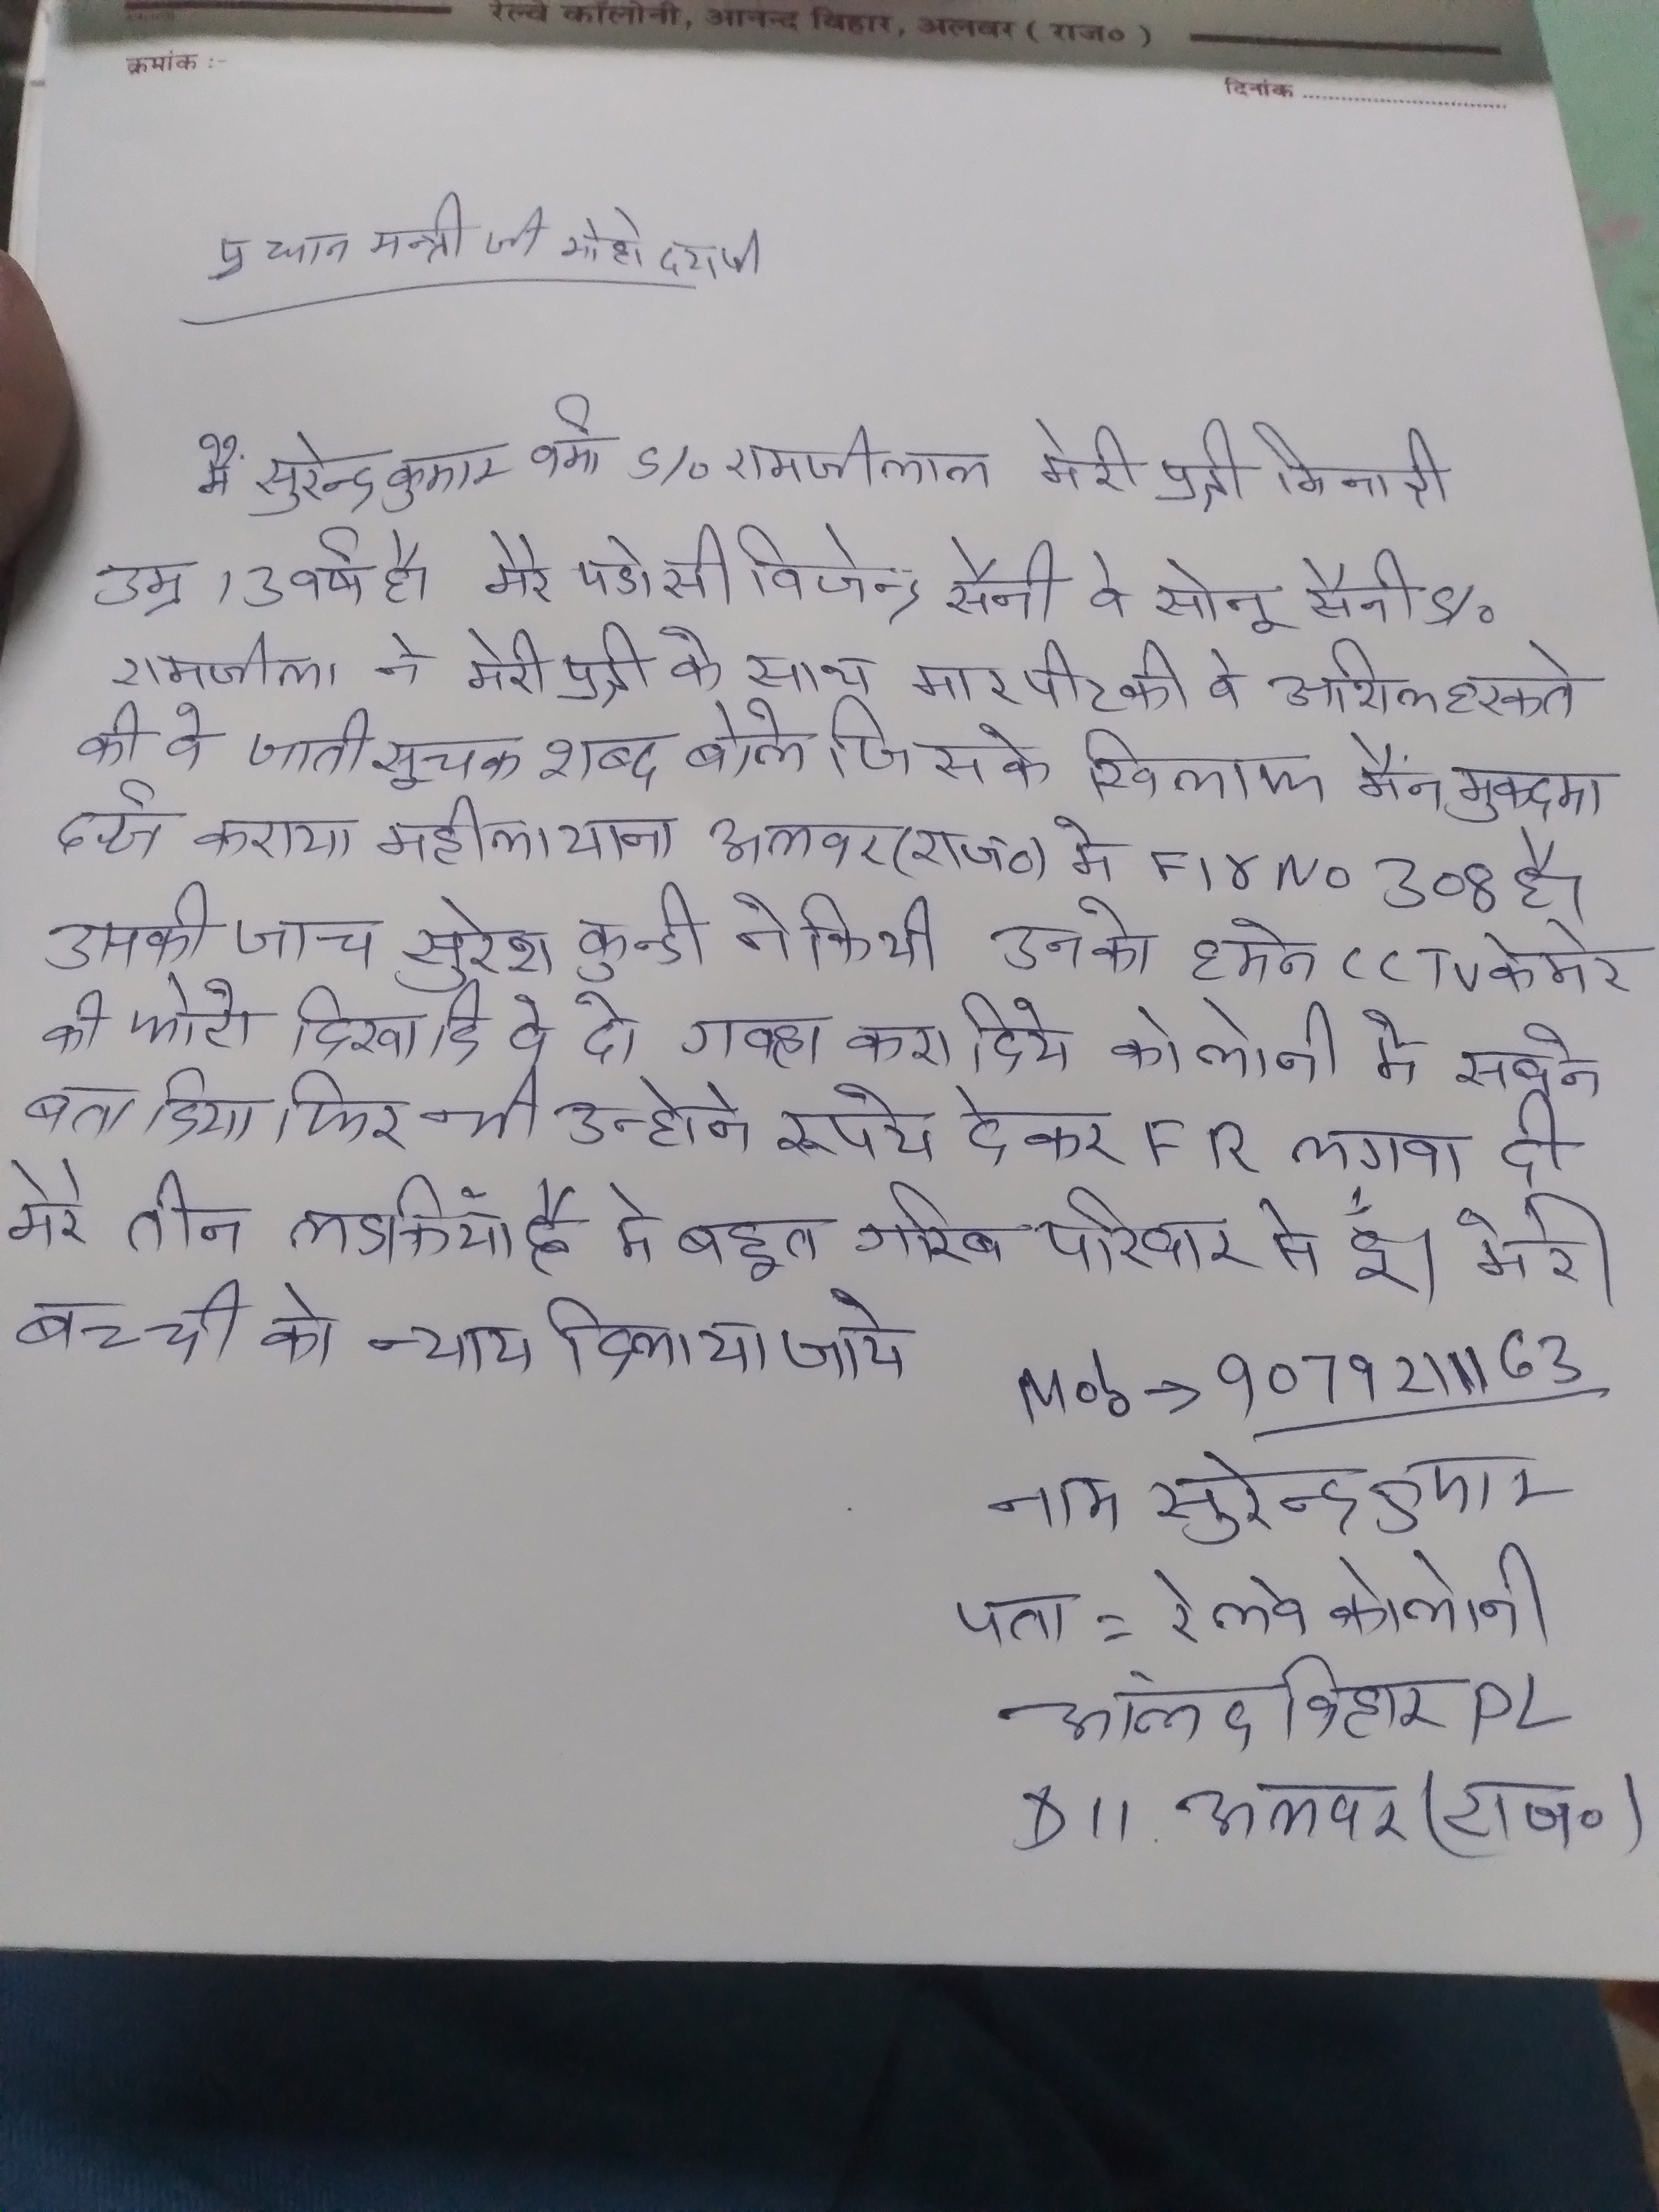 रेल्वे कॉलोनी, आनन्द विहार, अलवर ( राज० )
क्रमांक :-
दिनांक ........................................
प्रधान मन्त्री जी मोहोदयजी
मैं सुरेन्द्र कुमार वर्मा S/o रामजीलाल मेरी पुत्री
उम्र 13 वर्ष है। मेरे पडोसी विजेन्द्र सैनी वे सोनू सैनी S/o
रामजीला ने मेरी पुत्री के साथ मारपीट की वे अशिल हरकते
की वे जाती सूचक शब्द बोले जिसके खिलाफ मैंन मुकदमा
दर्ज कराया महीला थाना अलवर (राज०) मे FIR NO 308 है।
उसकी जाच सुरेश कुन्डी ने कियी उनको हमेन CCTV केमेरे
की फोटो दिखादि वे दो गवहा करा दिये कोलोनी मे सबने
बता दिया फिर भी उन्होने रूपये देकर FR लगवा दी
मेरे तीन लडकियाँ है मे बहूत गरिब परिवार से हूँ। मेरी
बच्ची को न्याय दिलाया जाये
Mob → 9079211163
नाम सुरेन्द्र कुमार
पता = रेलवे कोलोनी
आंनद विहार PL
D 11. अलवर (राज०)